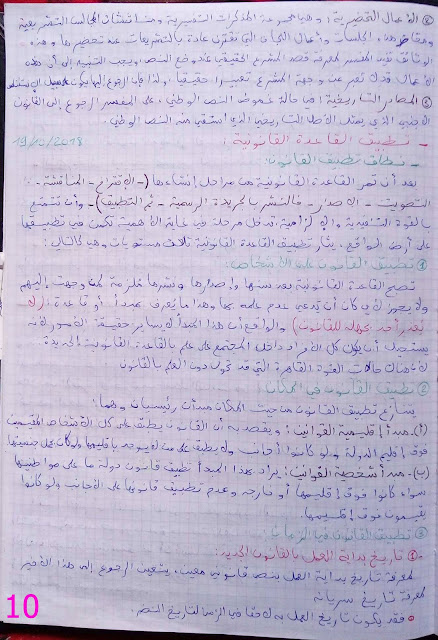 ② الأعمال التحضيرية: وهي مجموعة المذكرات التفسيرية ومناقشات المجالس التشريعية
ومحاضر هذه الجلسات وأعمال اللجان التي تقترن عادة بالتشريعات عند تحضيرها وهذه
الوثائق تفيد المفسر لمعرفة قصد المشرع الحقيقي عند وضع النص، ويجب التنبيه إلى أن هذه
الأعمال قد لا تعبر عن وجهة المشرع تعبيرا حقيقيا، لذا فإن الرجوع إليها يكون على سبيل الاستئناس
③ المصادر التاريخية: في حالة غموض النص الوطني، على المفسر الرجوع إلى القانون
الأجنبي الذي يمثل الأصل التاريخي الذي استقي منه النص الوطني.
- تطبيق القاعدة القانونية: 19/10/2018
- نطاق تطبيق القانون:
بعد أن تمر القاعدة القانونية من مراحل إنشاءها (- الاقتراح - المناقشة -
التصويت - الإصدار - فالنشر بالجريدة الرسمية - ثم التطبيق) - وأن تتمتع
بالقوة التنفيذية والإلزامية، تدخل مرحلة في غاية الأهمية تكون في تطبيقها
على أرض الواقع. يثار تطبيق القاعدة القانونية ثلاث مستويات وهي كالتالي:
① تطبيق القانون على الأشخاص:
تصبح القاعدة القانونية بعد سنها وإصدارها ونشرها ملزمة لمن وجهت إليهم
ولا يجوز لأي كان أن يدعي عدم علمه بها وهذا ما يعرف بمبدأ أو قاعدة: (لا
يعذر أحد بجهله للقانون) والواقع أن هذا المبدأ لا يساير حقيقة الأمور لأنه
يستحيل أن يكون كل الأفراد داخل المجتمع على علم بالقاعدة القانونية الجديدة
لأن هناك حالات القوة القاهرة التي قد تحول دون العلم بالقانون
② تطبيق القانون في المكان:
يتنازع تطبيق القانون من حيث المكان مبدأن رئيسيان وهما:
(أ) - مبدأ إقليمية القوانين: ويقصد به أن القانون يطبق على كل الأشخاص المقيمين
فوق إقليم الدولة ولو كانوا أجانب ولا يطبق على من لا يوجد بإقليمها ولو كان يحمل جنسيتها
(ب) - مبدأ شخصية القوانين: يراد بهذا المبدأ تطبيق قانون دولة ما على مواطنيها
سواء كانوا فوق إقليمها أو خارجه وعدم تطبيق قانونها على الأجانب ولو كانوا
يقيمون فوق إقليمها.
③ تطبيق القانون في الزمان:
① تاريخ بداية العمل بالقانون الجديد:
لمعرفة تاريخ بداية العمل بنص قانوني معين، يتعين الرجوع إلى هذا الأخير
لمعرفة تاريخ سريانه
• فقد يكون تاريخ العمل به لاحقا في الزمن لتاريخ النشر.
10